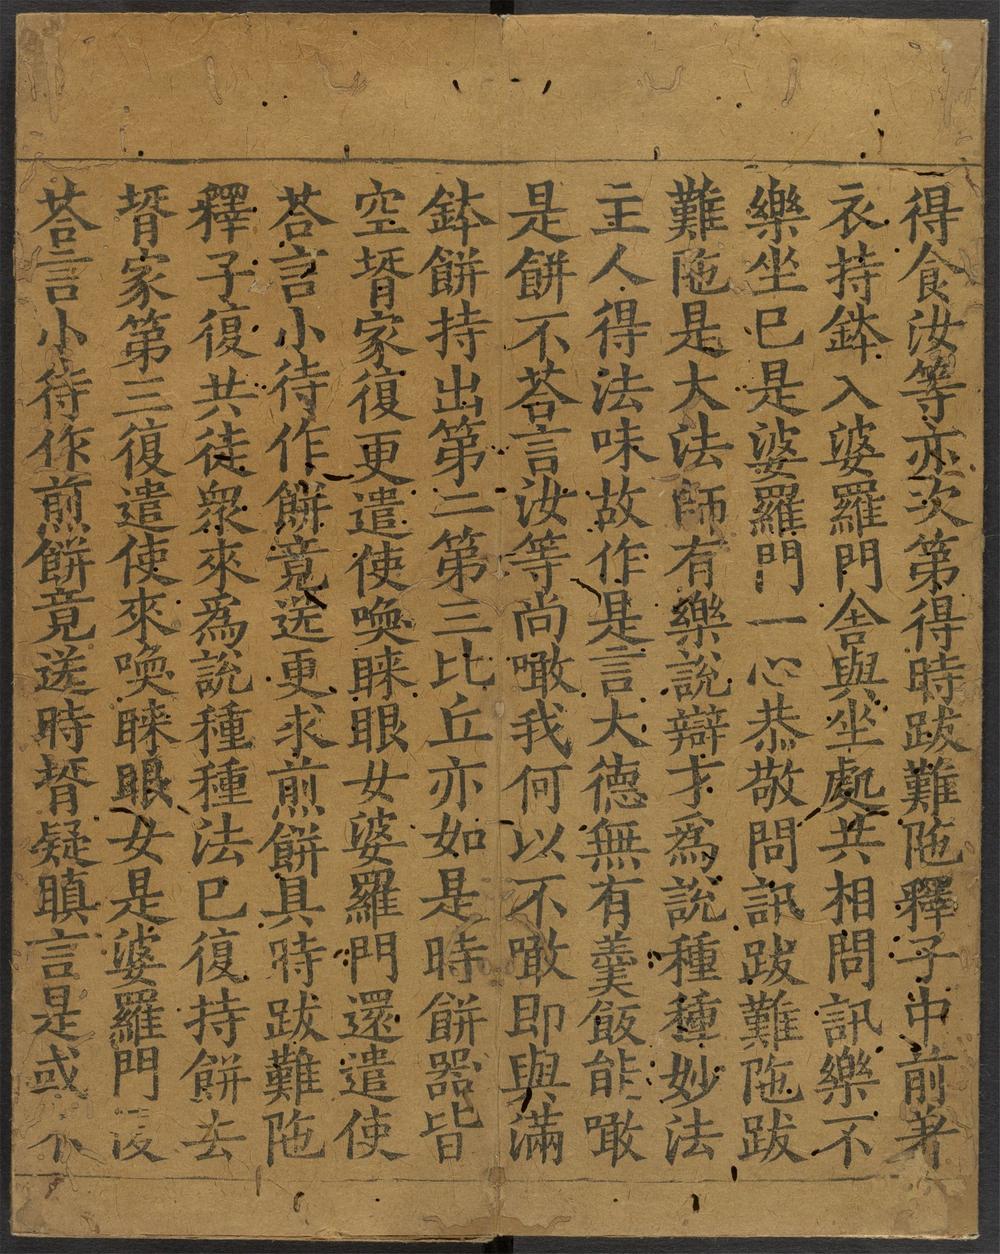 得食汝等亦次第得時跋難陁釋子中前著
衣持鉢入婆羅門舍與坐處共相問訊樂不
樂坐已是婆羅門一心恭敬問訊跋難陁跋
難陁是大法師有樂說辯才為說種種妙法
主人得法味故作是言大德無有羹飯能噉
是餅不荅言汝等尚噉我何以不噉即與滿
鉢餅持出第二第三比丘亦如是時餅器皆
空壻家復更遣使喚睞眼女婆羅門還遣使
荅言小待作餅竟送更求煎餅具時跋難陁
釋子復共徒衆來為說種種法已復持餅去
壻家第三復遣使來喚睞眼女是婆羅門復
荅言小待作煎餅竟送時壻疑瞋言是或不